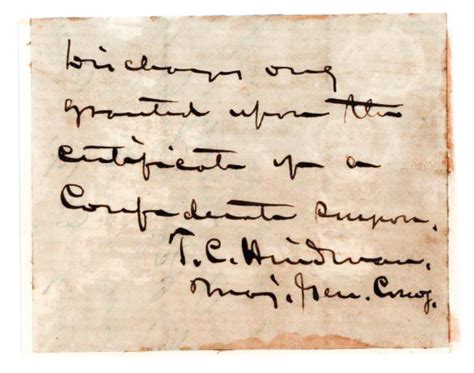 Discharges only
granted upon the
certificate of a
Confederate surgeon.
T. C. Hindman,
Maj. Gen. Comg.